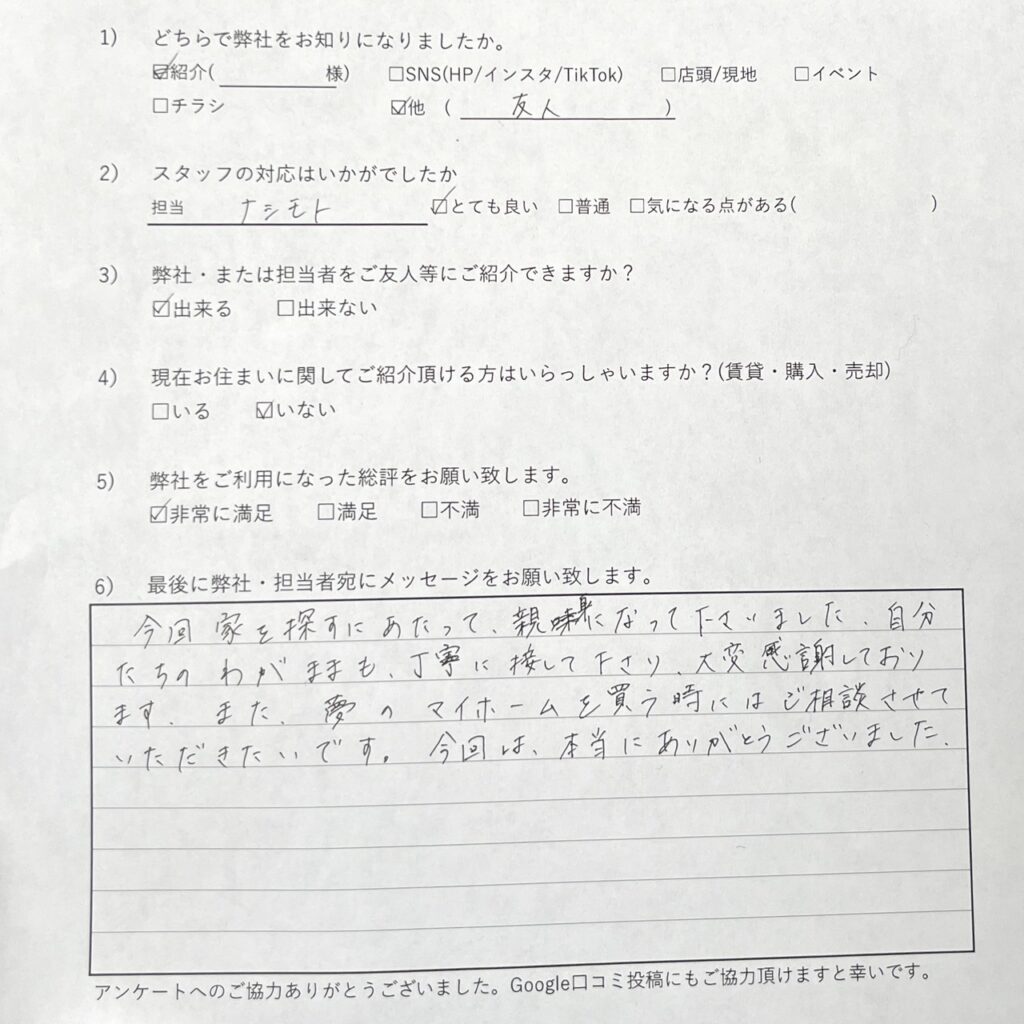 1) どちらで弊社をお知りになりましたか。
☑紹介( 様) □SNS(HP/インスタ/TikTok) □店頭/現地 □イベント
□チラシ ☑他 ( 友人 )
2) スタッフの対応はいかがでしたか
担当 ナシモト ☑とても良い □普通 □気になる点がある( )
3) 弊社・または担当者をご友人等にご紹介できますか？
☑出来る □出来ない
4) 現在お住まいに関してご紹介頂ける方はいらっしゃいますか？(賃貸・購入・売却)
□いる ☑いない
5) 弊社をご利用になった総評をお願い致します。
☑非常に満足 □満足 □不満 □非常に不満
6) 最後に弊社・担当者宛にメッセージをお願い致します。
今回家を探すにあたって、親身になって下さいました、自分
たちのわがままも、丁寧に接して下さり、大変感謝しており
ます、また、夢のマイホームを買う時にはご相談させて
いただきたいです。今回は、本当にありがとうございました、
アンケートへのご協力ありがとうございました。Google口コミ投稿にもご協力頂けますと幸いです。